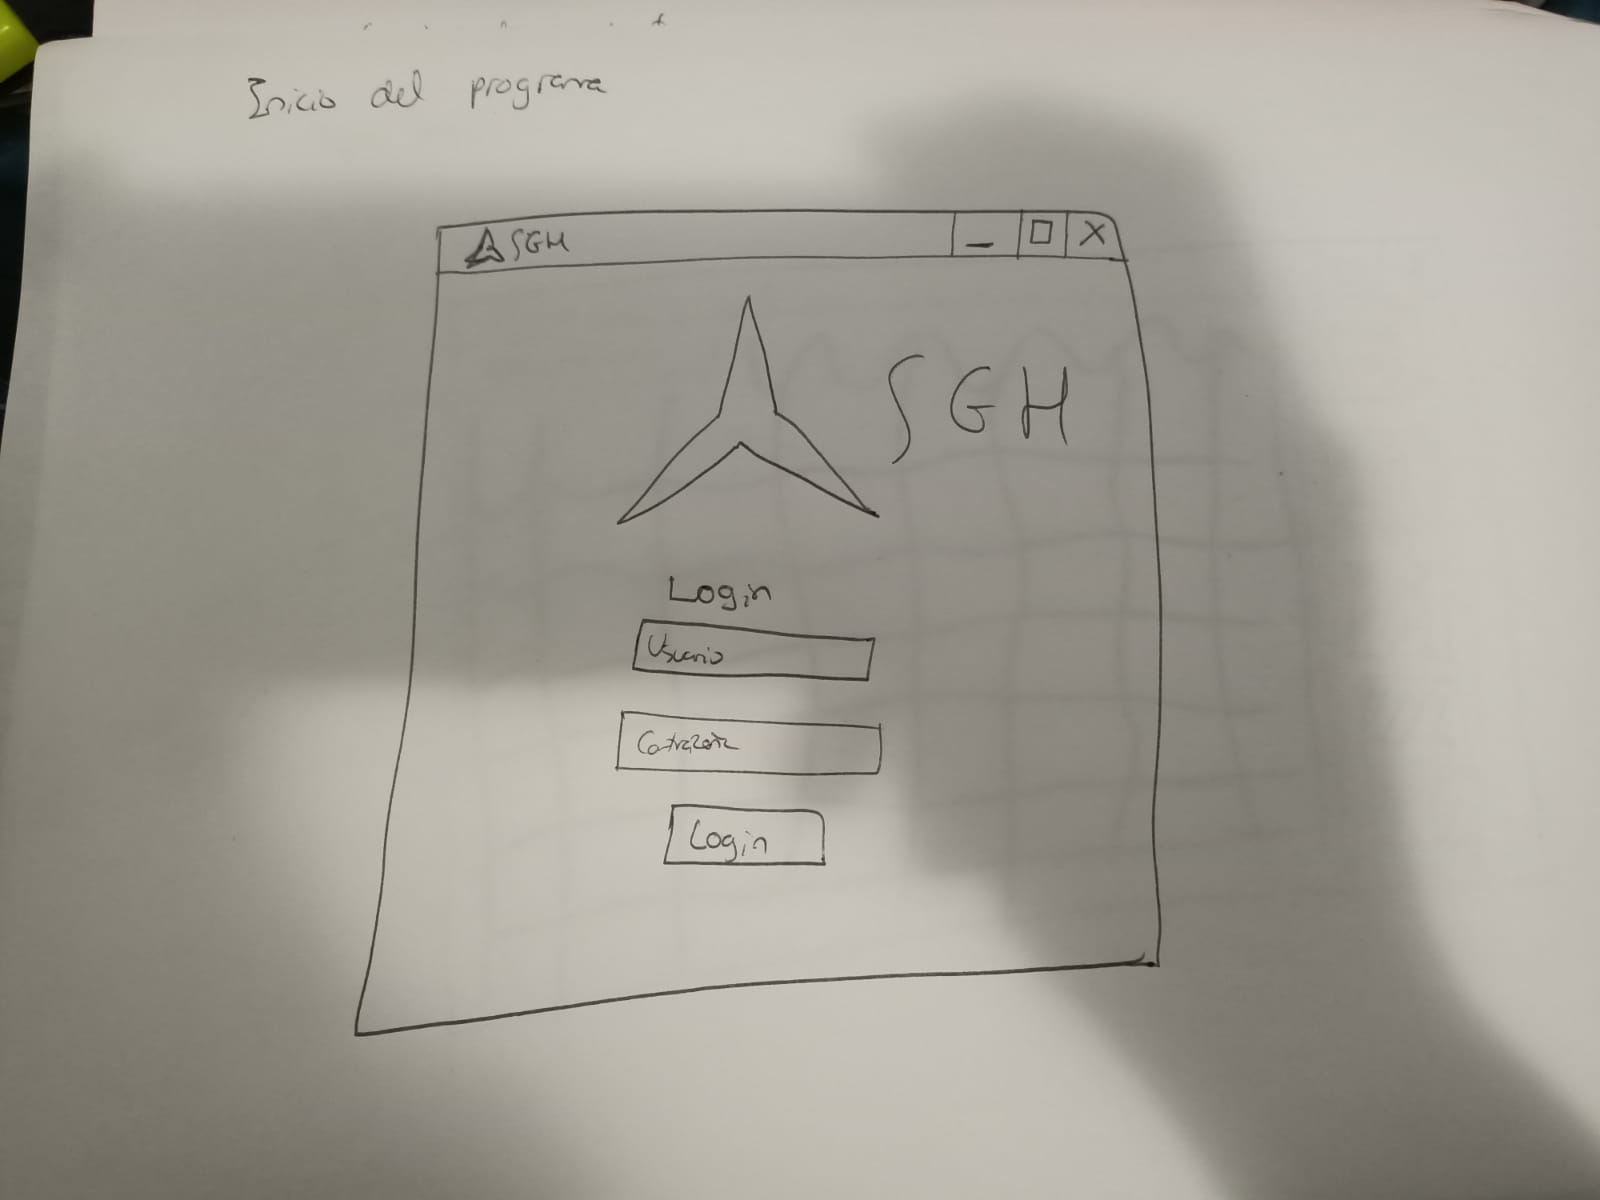 Inicio del programa
SGH
SGH
Login
Usuario
Contraseña
Login